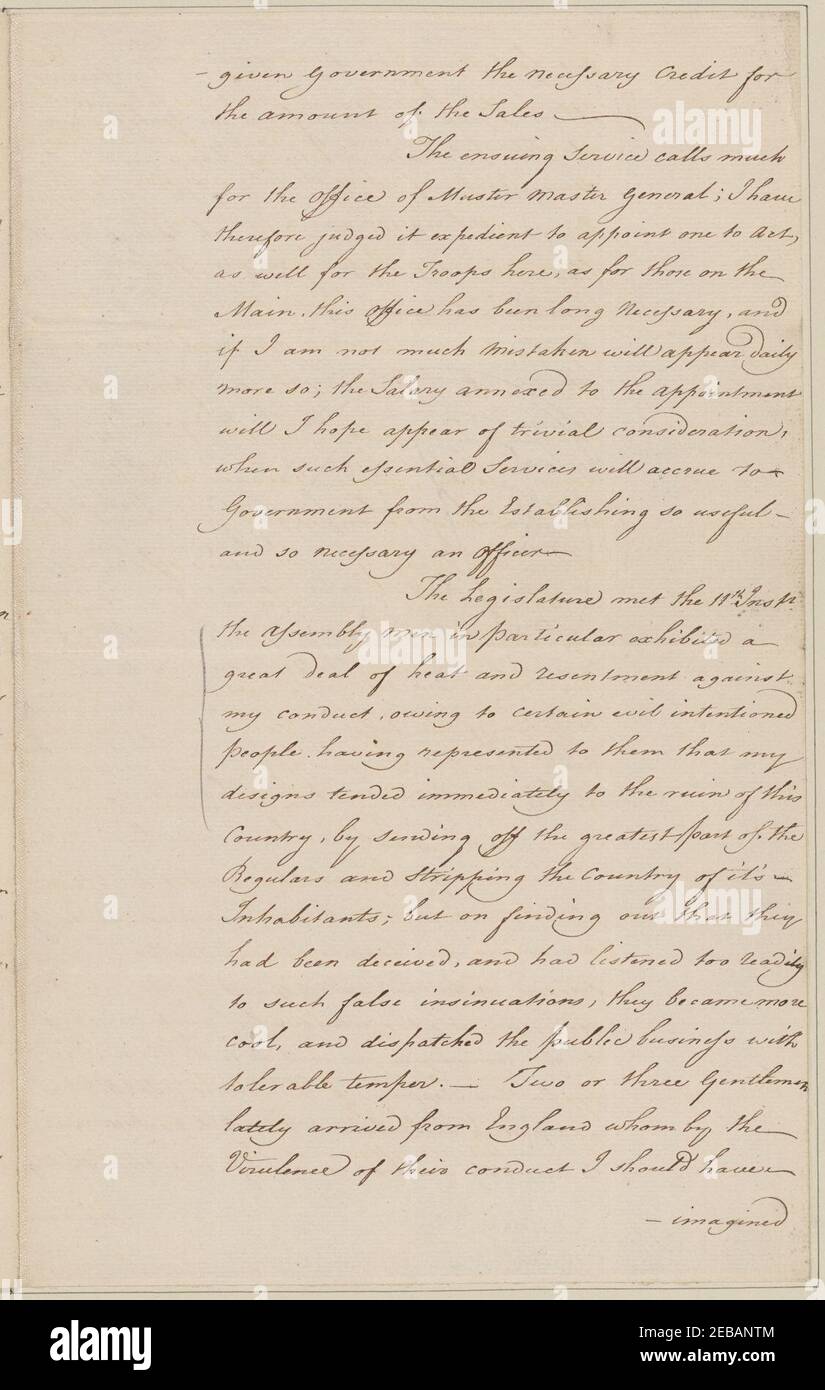 - given Government the necessary Credit for
the amount of the Sales —
The ensuing Service calls much
for the Office of Muster Master General; I have
therefore judged it expedient to appoint one to Act,
as well for the Troops here, as for those on the
Main, this office has been long Necessary, and
if I am not much Mistaken will appear daily
more so; the Salary annexed to the appointment
will I hope appear of trivial consideration,
when such essential Services will accrue to -
Government from the Establishing so useful -
and so necessary an Officer —
The Legislature met the 11th Inst.
the Assembly Men in particular exhibited a
great deal of heat and resentment against
my conduct, owing to certain evil intentioned
people having represented to them that my
designs tended immediately to the ruin of this
Country, by sending off the greatest part of the
Regulars and Stripping the Country of it's -
Inhabitants; but on finding out that they
had been deceived, and had listened too readily
to such false insinuations, they became more
cool, and dispatched the public business with
tolerable temper. — Two or three Gentlemen
lately arrived from England whom by the
Virulence of their conduct I should have -
- imagined
alamy
Image ID: 2EBANTM
www.alamy.com